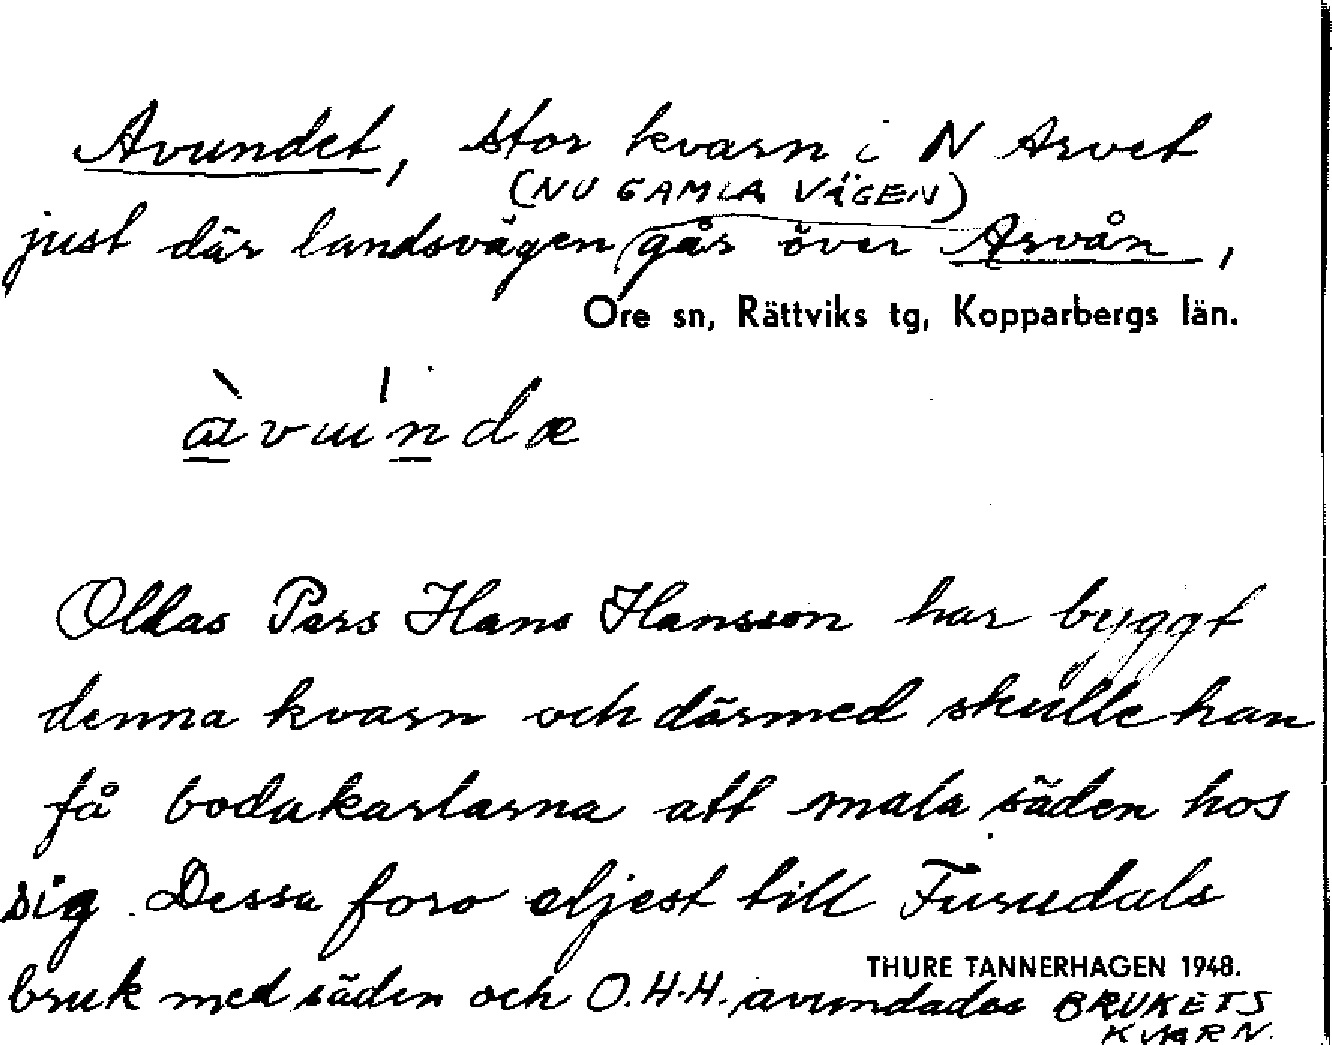 Avundet, stor kvarn i N Arvet
(NU GAMLA VÄGEN)
just där landsvägen går över Arvån,
Ore sn, Rättviks tg, Kopparbergs län.
Ollas Pers Hans Hansson har byggt
denna kvarn och därmed skulle han
få bodakarlarna att mala säden hos
sig. Dessa foro eljest till Furudals
THURE TANNERHAGEN 1948.
bruk med säden och O.H.H. avundades BRUKETS
KVARN.